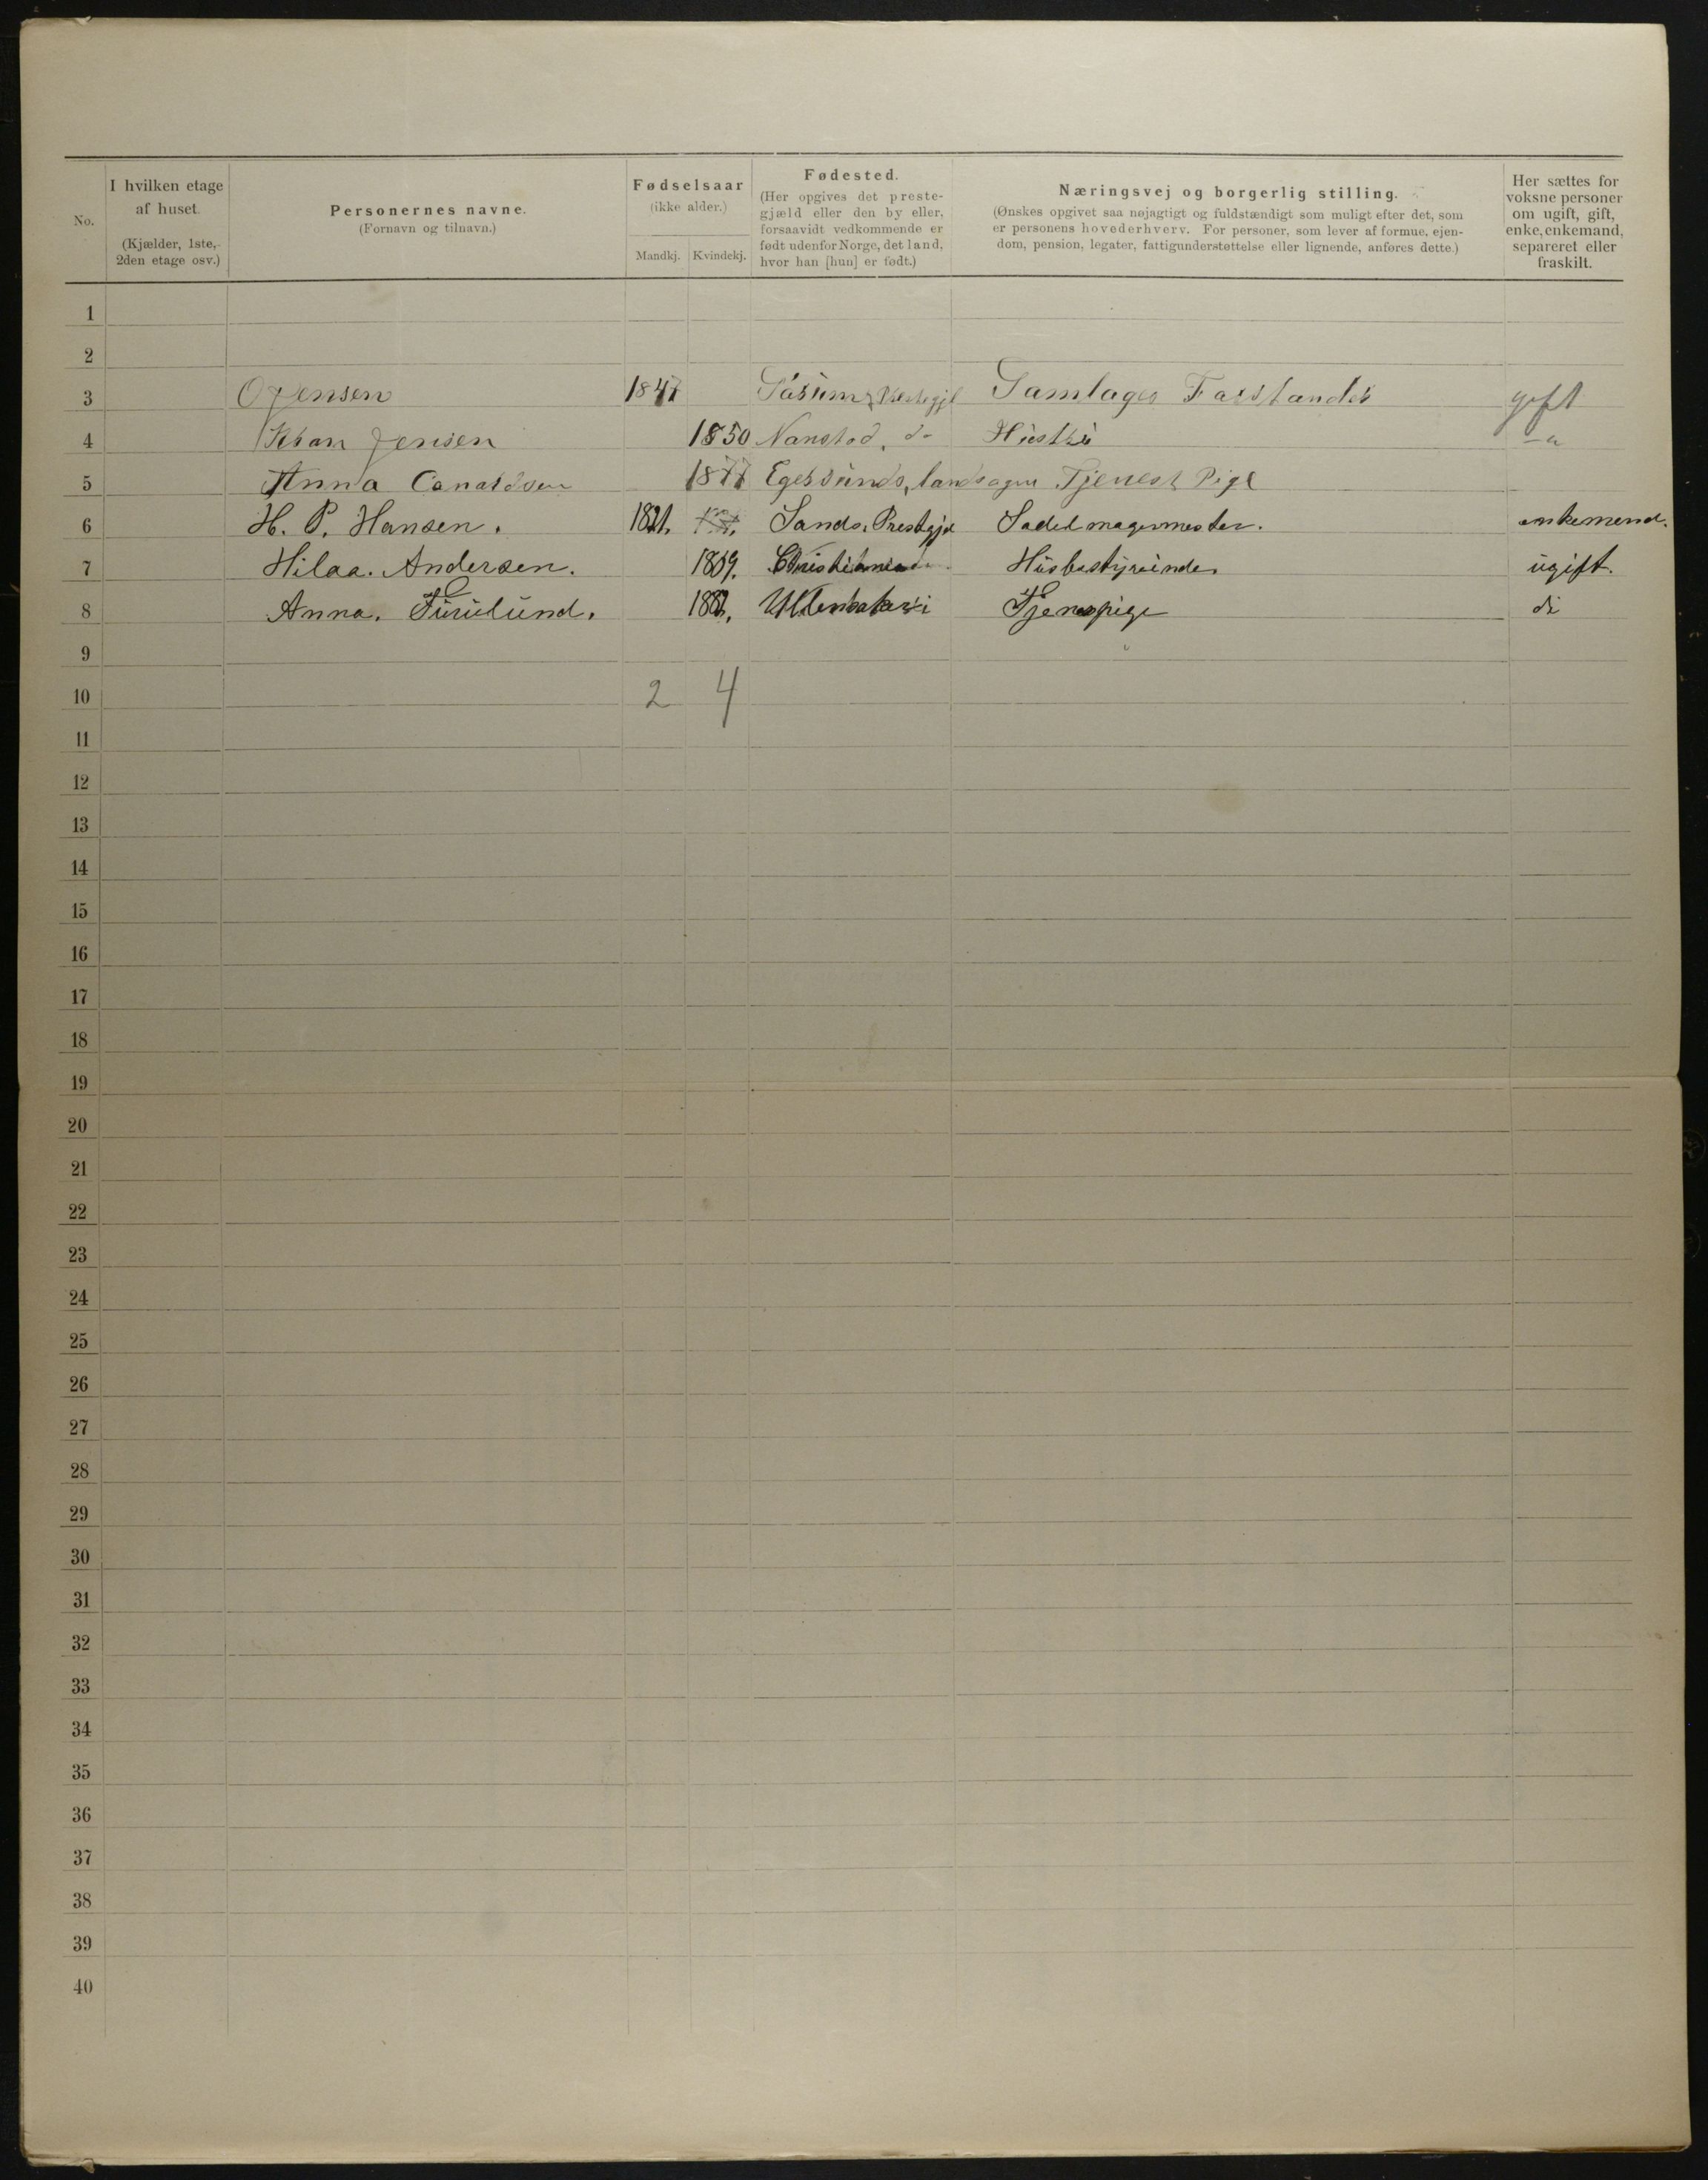 No.
I hvilken etage af huset. (Kjælder, 1ste, 2den etage osv.)
Personernes navne. (Fornavn og tilnavn.)
Fødselsaar (ikke alder.) Mandkj. Kvindekj.
Fødested. (Her opgives det prestegjæld eller den by eller, forsaavidt vedkommende er født udenfor Norge, det land, hvor han [hun] er født.)
Næringsvej og borgerlig stilling. (Ønskes opgivet saa nøjagtigt og fuldstændigt som muligt efter det, som er personens hovederhverv. For personer, som lever af formue, ejendom, pension, legater, fattigunderstøttelse eller lignende, anføres dette.)
Her sættes for voksne personer om ugift, gift, enke, enkemand, separeret eller fraskilt.
1
2
3 O Jensen 1847 Samlages gift
4 Jensen 1850 do Hustru
5 Anna 1877 Egersunds landsogn Tjenest Pige
6 H. P. Hansen. 1821. Sands. Prestgjel Sadelmagermester. enkemend.
7 Hilaa. Andersen. 1869. Christiania Husbestyrinde. ugift.
8 Anna. Furulund. Tjenespige di
9
10 2 4
11
12
13
14
15
16
17
18
19
20
21
22
23
24
25
26
27
28
29
30
31
32
33
34
35
36
37
38
39
40